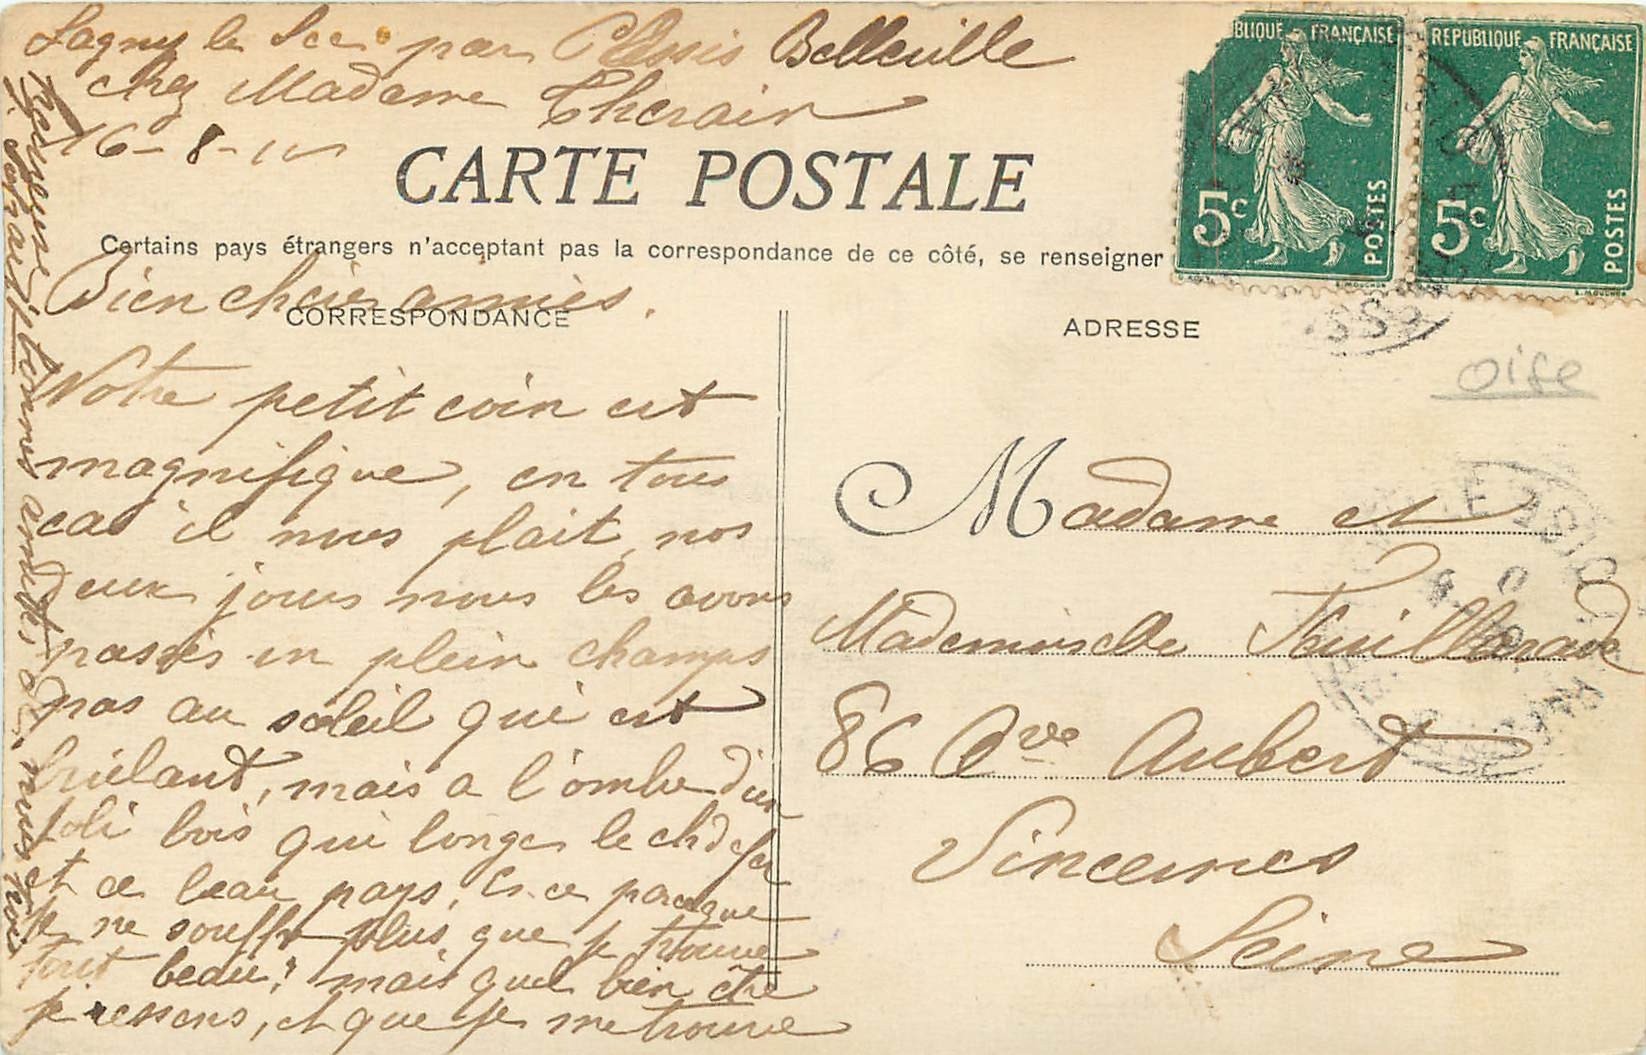 Lagny le Sec par Plessis Belleville
chez Madame Therain
16-8-10
CARTE POSTALE
Certains pays étrangers n'acceptant pas la correspondance de ce côté, se renseigner
Bien chéres amies.
CORRESPONDANCE
Notre petit coin est
magnifique, en tous
cas il nous plait, nos
deux jours nous les avons
passés en plein champs
pas au soleil qui est
brûlant, mais a l'ombre d'un
joli bois qui longe le ch d fer
et ce beau pays. Es-ce parceque
je ne souffre plus, que je trouve
tout beau? mais quel bien être
je ressens, et que je me trouve
heureuse
si j'avais
bonnes amitiés, de nous tous
RÉPUBLIQUE FRANÇAISE
5c
POSTES
E. MOUCHON
REPUBLIQUE FRANÇAISE
5c
POSTES
E. MOUCHON
ADRESSE
oise
Madame et
Mademoiselle
86 Ave Aubert
Vincennes
Seine